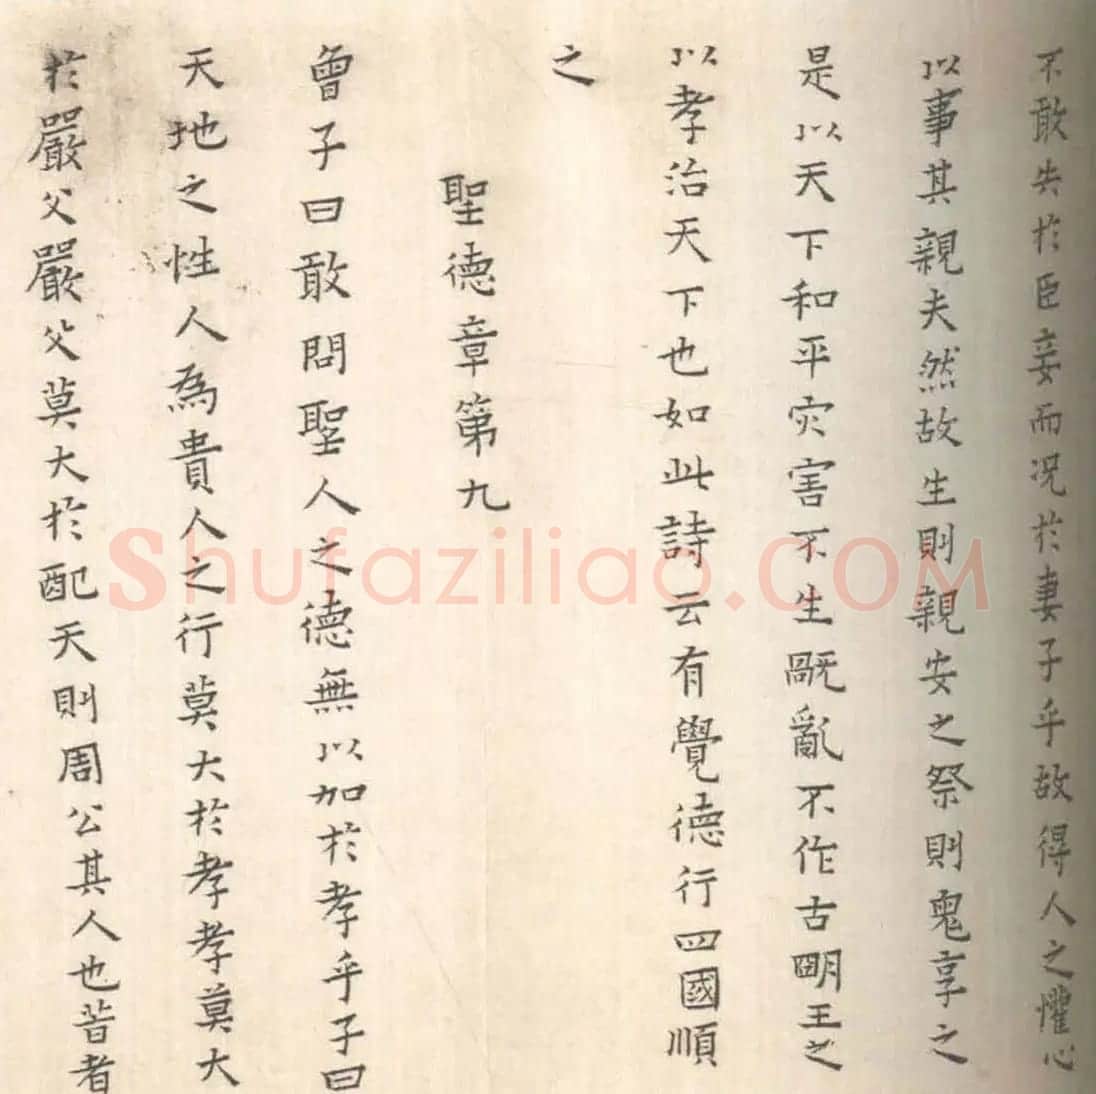 不敢失於臣妾而況於妻子乎故得人之懽心
以事其親夫然故生則親安之祭則鬼享之
是以天下和平灾害不生禍亂不作古明王之
以孝治天下也如此詩云有覺德行四國順
之
聖德章第九
曾子曰敢問聖人之德無以加於孝乎子曰
天地之性人為貴人之行莫大於孝孝莫大
於嚴父嚴父莫大於配天則周公其人也昔者
Shufaziliao.COM